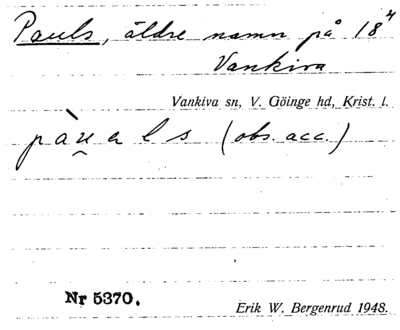 Pauls, äldre namn på 18⁴
Vankiva
Vankiva sn, V. Göinge hd, Krist. l.
pàu̯als (obs. acc.)
Nr 5370.
Erik W. Bergenrud 1948.